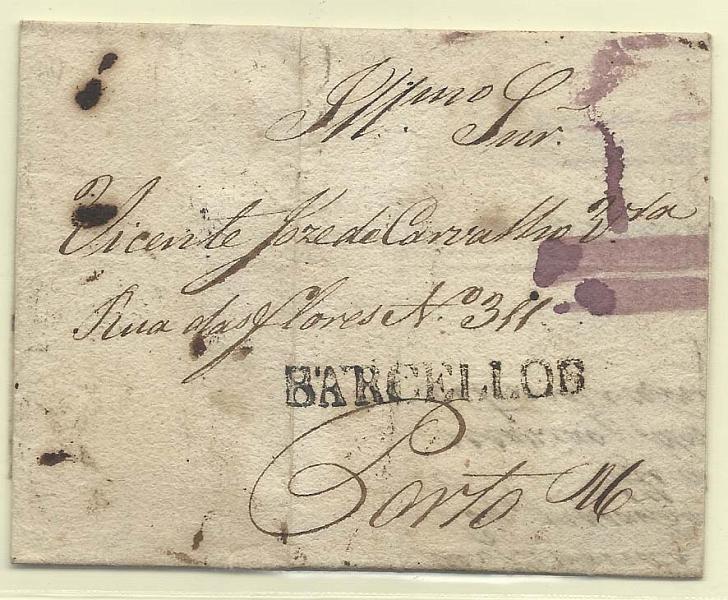 Illmo Snr.
Vicente Joze de Carvalho Vra
Rua das Flores No 311
BARCELLOS
Porto M